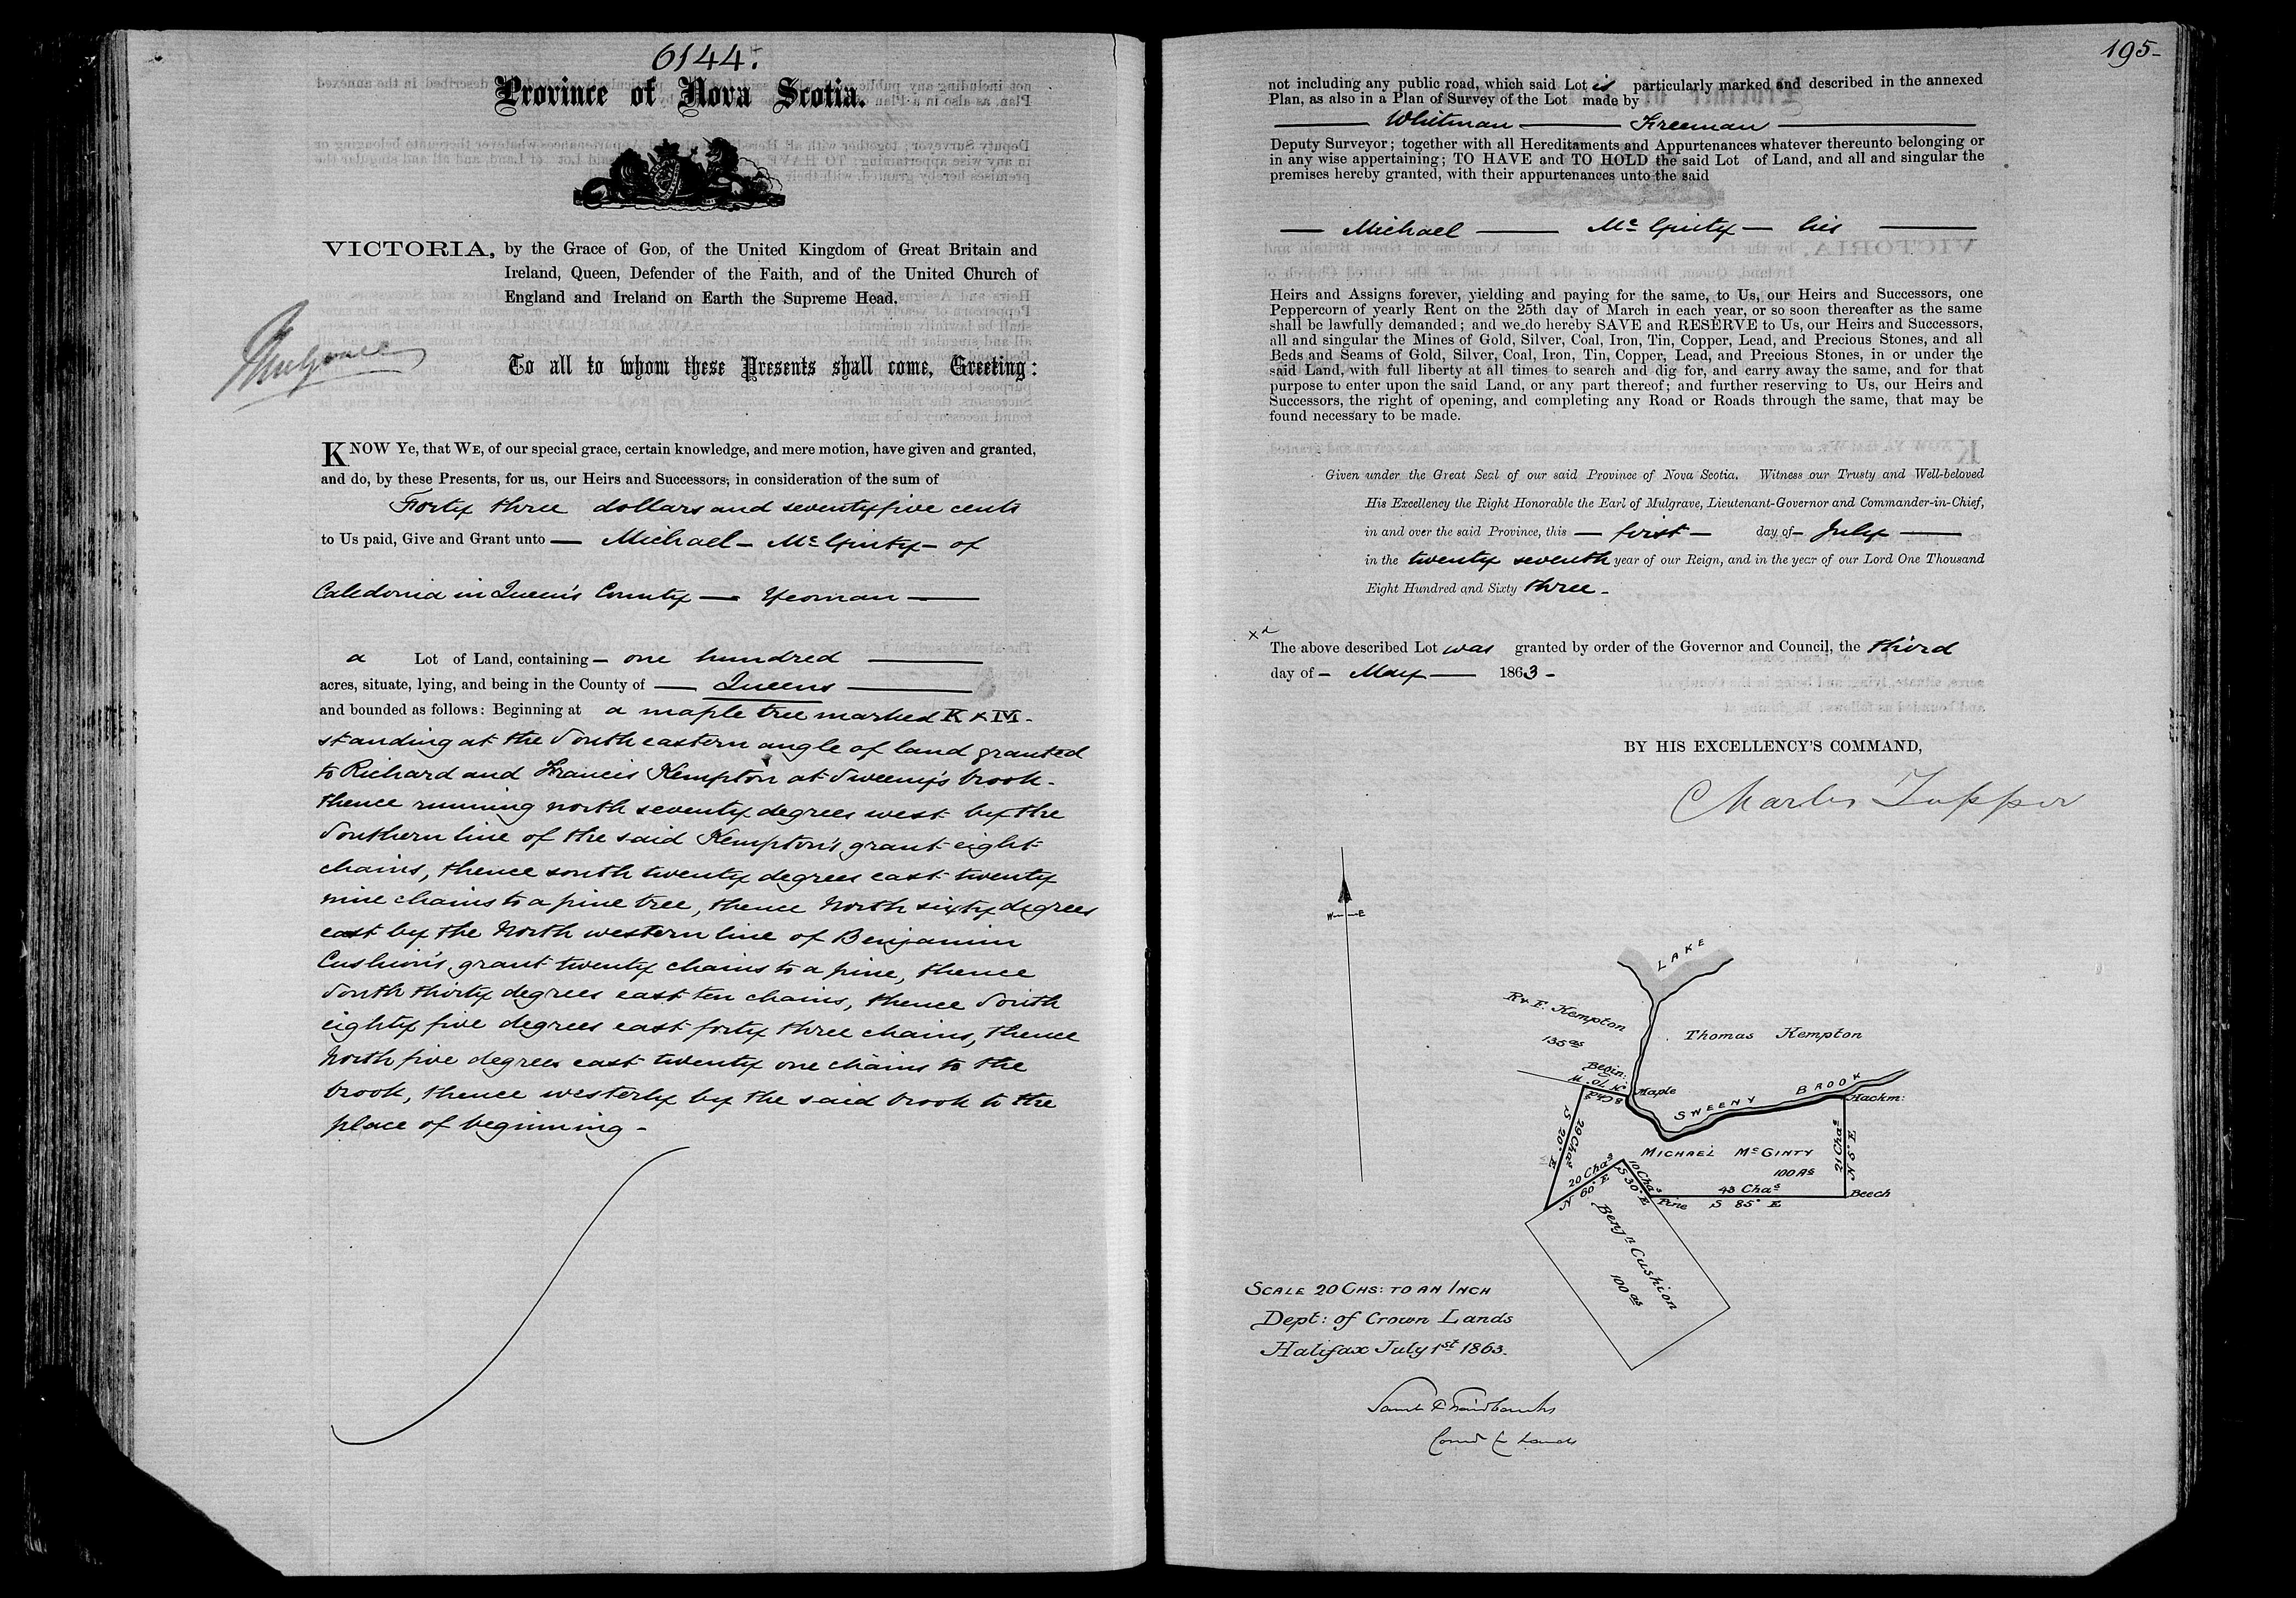 6144.
Province of Nova Scotia.
VICTORIA, by the Grace of GOD, of the United Kingdom of Great Britain and
Ireland, Queen, Defender of the Faith, and of the United Church of
England and Ireland on Earth the Supreme Head,
Mulgrave
To all to whom these Presents shall come, Greeting:
KNOW YE, that WE, of our special grace, certain knowledge, and mere motion, have given and granted,
and do, by these Presents, for us, our Heirs and Successors, in consideration of the sum of
Forty three dollars and seventy five cents
to Us paid, Give and Grant unto — Michael — Mc Ginty — of
Caledonia in Queen's County — Yeoman —
a Lot of Land, containing — one hundred —
acres, situate, lying, and being in the County of — Queens —
and bounded as follows: Beginning at a maple tree marked K x M -
standing at the South eastern angle of land granted
to Richard and Francis Kempton at Sweeny's brook -
thence running north seventy degrees west by the
Southern line of the said Kempton's grant eight
chains, thence south twenty degrees east twenty
nine chains to a pine tree, thence North sixty degrees
east by the North western line of Benjamin
Cushion's grant twenty chains to a pine, thence
South thirty degrees east ten chains, thence South
eighty five degrees east forty three chains, thence
North five degrees east twenty one chains to the
brook, thence westerly by the said brook to the
place of beginning -
195-
not including any public road, which said Lot is particularly marked and described in the annexed
Plan, as also in a Plan of Survey of the Lot made by
— Whitman — Freeman —
Deputy Surveyor; together with all Hereditaments and Appurtenances whatever thereunto belonging or
in any wise appertaining; TO HAVE and TO HOLD the said Lot of Land, and all and singular the
premises hereby granted, with their appurtenances unto the said
— Michael — Mc Ginty — his —
Heirs and Assigns forever, yielding and paying for the same, to Us, our Heirs and Successors, one
Peppercorn of yearly Rent on the 25th day of March in each year, or so soon thereafter as the same
shall be lawfully demanded; and we do hereby SAVE and RESERVE to Us, our Heirs and Successors,
all and singular the Mines of Gold, Silver, Coal, Iron, Tin, Copper, Lead, and Precious Stones, and all
Beds and Seams of Gold, Silver, Coal, Iron, Tin, Copper, Lead, and Precious Stones, in or under the
said Land, with full liberty at all times to search and dig for, and carry away the same, and for that
purpose to enter upon the said Land, or any part thereof; and further reserving to Us, our Heirs and
Successors, the right of opening, and completing any Road or Roads through the same, that may be
found necessary to be made.
Given under the Great Seal of our said Province of Nova Scotia. Witness our Trusty and Well-beloved
His Excellency the Right Honorable the Earl of Mulgrave, Lieutenant-Governor and Commander-in-Chief,
in and over the said Province, this — first — day of — July —
in the twenty seventh year of our Reign, and in the year of our Lord One Thousand
Eight Hundred and Sixty three -
The above described Lot was granted by order of the Governor and Council, the third
day of - May — 1863 -
BY HIS EXCELLENCY'S COMMAND,
Charles Tupper
W E
LAKE
R & F. Kempton
135 as
Thomas Kempton
Begin:
N 70° W
8 Chas
Maple
SWEENY BROOK
Hackm:
S 20° E
29 Chas
MICHAEL McGINTY
100 As
21 Chas
N 5° E
20 Chas
N 60° E
10 Chas
S 30° E
Pine
43 Chas
S 85° E
Beech
Benjn Cushion
100 as
SCALE 20 CHS: TO AN INCH
Dept: of Crown Lands
Halifax July 1st 1863.
Saml P Fairbanks
Comr C Lands